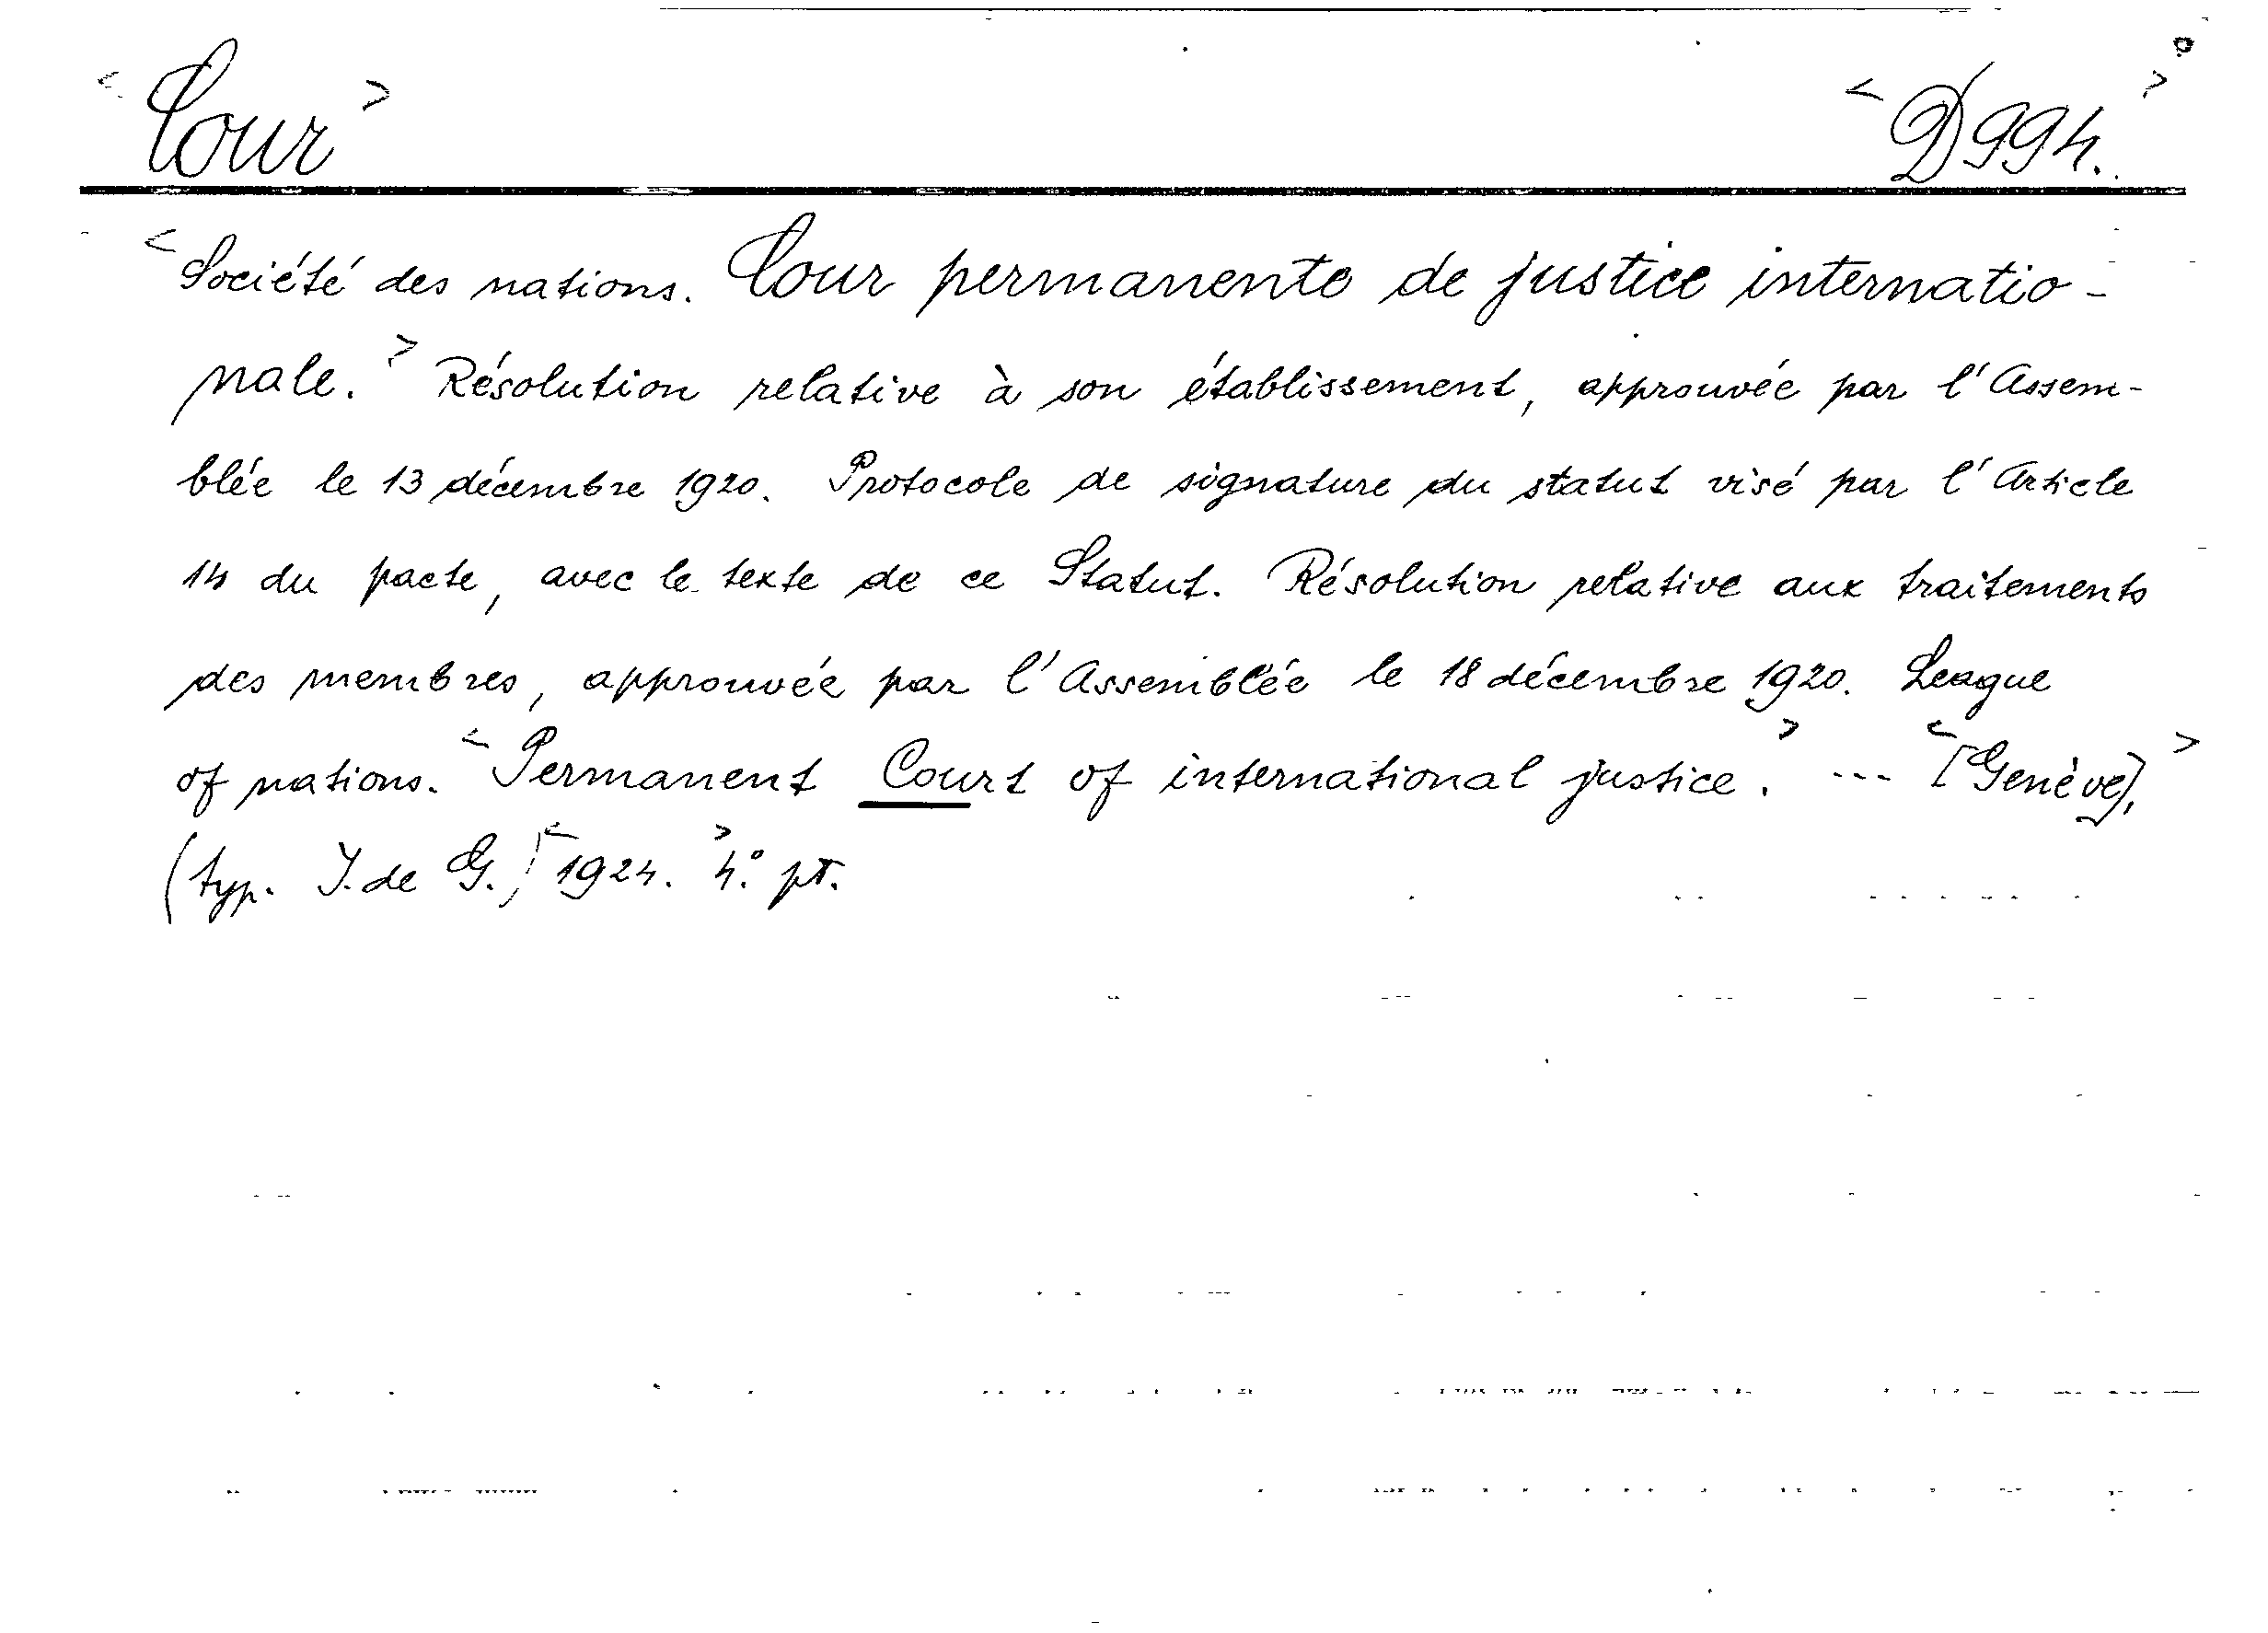 <Cour> <D994.>
<Société des nations. Cour permanente de justice internatio-
nale.> Résolution relative à son établissement, approuvée par l'Assem-
blée le 13 décembre 1920. Protocole de signature du statut visé par l'Article
14 du pacte, avec le texte de ce Statut. Résolution relative aux traitements
des membres, approuvée par l'Assemblée le 18 décembre 1920. League
of nations. <Permanent Court of international justice.> --- <[Genève],>
(typ. J. de G.) <1924.> 4.° pt.